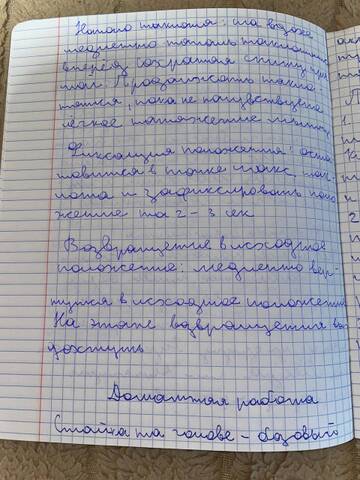 Начало наклона: на вдохе
медленно начать наклоняться
вперёд сохраняя спину пря-
мой. Продолжать накло-
няться, пока не почувствуете
лёгкое натяжение мышц.
Фиксация положения: оста-
новиться в точке макс. нак-
лона и зафиксировать поло-
жение на 2-3 сек
Возвращение в исходное
положение: медленно вер-
нуться в исходное положение
На этапе возвращения вы-
дохнуть
Домашняя работа
Стойка на голове - базовый